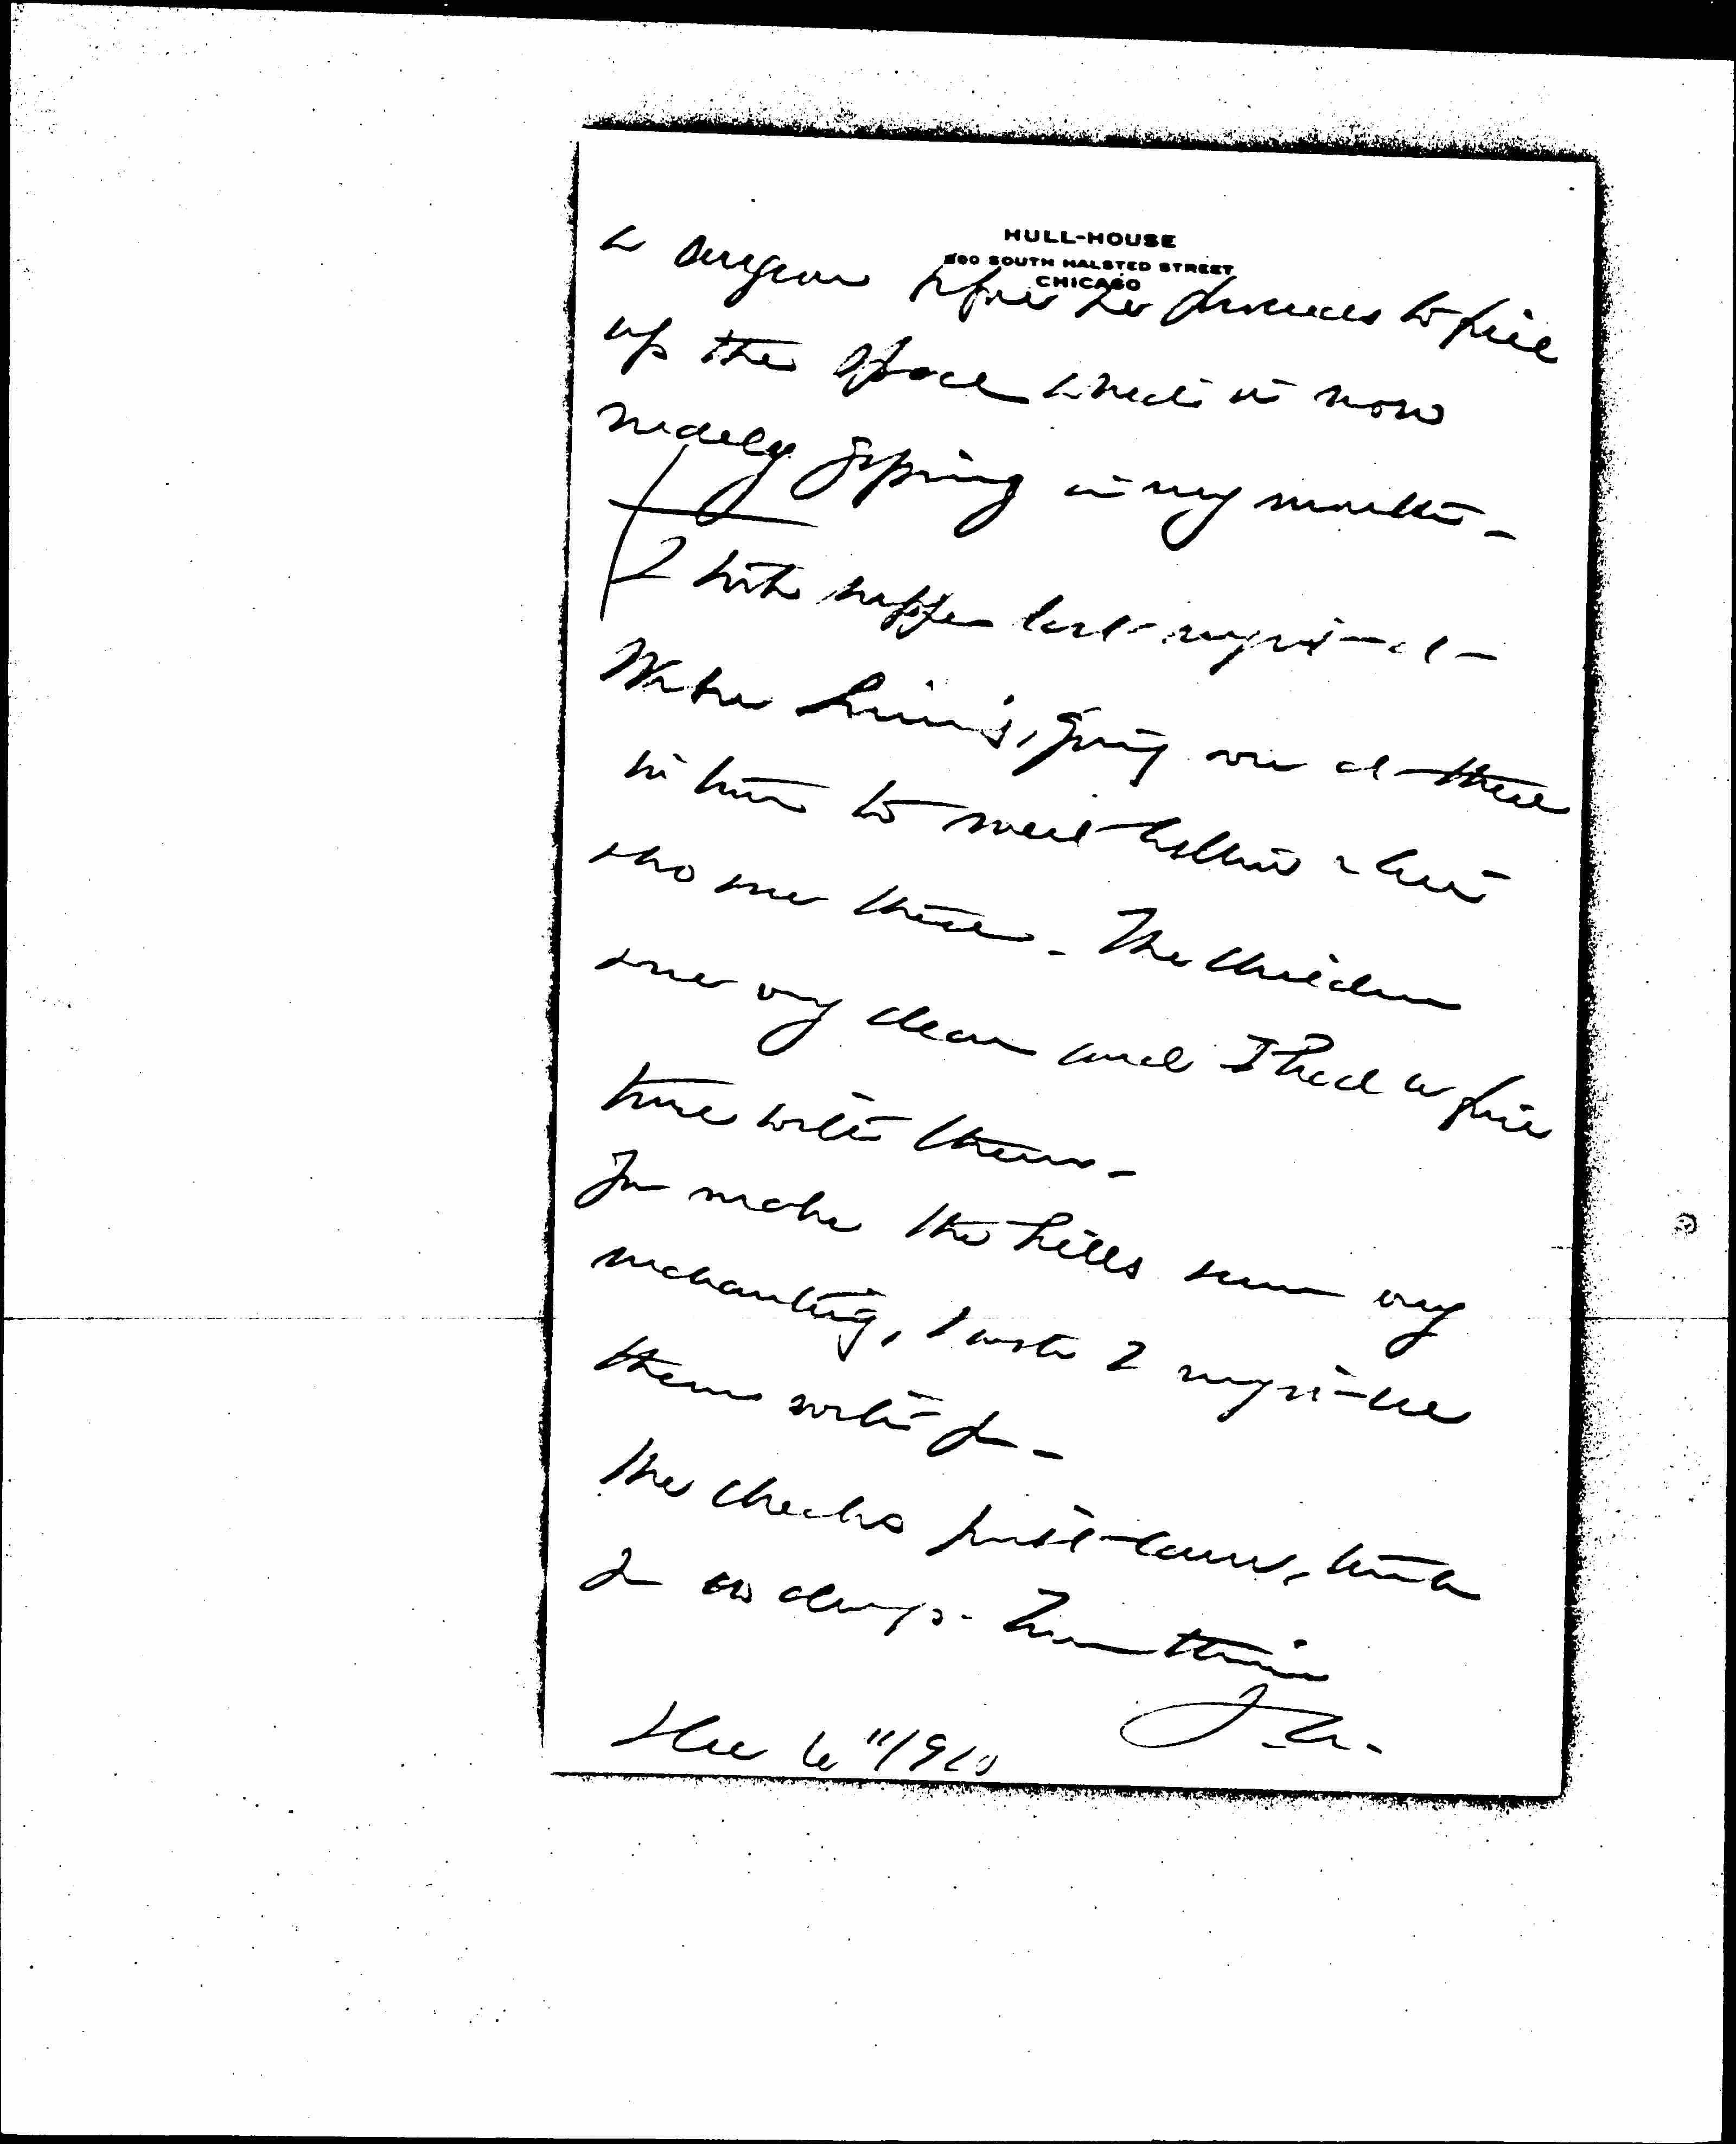 HULL-HOUSE
800 SOUTH HALSTED STREET
CHICAGO
a surgeon before he proceeds to fill
up the space which is now
merely gaping in my mouth -
I took supper last night at
Walter , going out there
in time to meet
who was there. The children
were very dear and I had a fine
time with them -
You make the hills seem very
enchanting, I wish I might see
them with you -
The checks just came, thank
you as always. Ever thine
J. A.
Dec 6" 1910